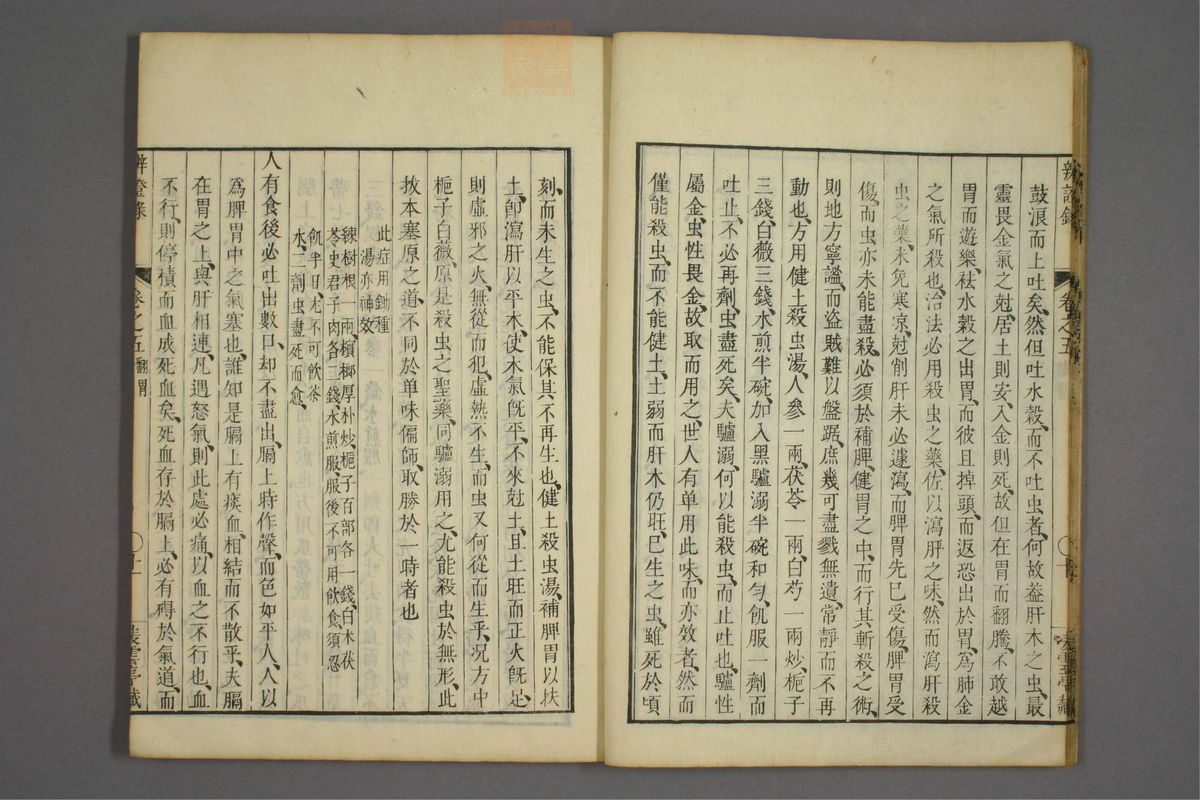 辨證錄 卷之五
鼓浪而上吐矣、然但吐水穀、而不吐虫者、何故、葢肝木之虫、最
靈、畏金氣之尅、居土則安、入金則死、故但在胃而翻騰、不敢越
胃而遊樂、祛水穀之出胃、而彼且掉頭而返、恐出於胃、爲肺金
之氣所殺也、治法必用殺虫之藥、佐以瀉肝之味、然而瀉肝殺
虫之藥、未免寒凉、尅削肝未必遽瀉、而脾胃先已受傷、脾胃受
傷、而虫亦未能盡殺、必須於補脾健胃之中、而行其斬殺之術、
則地方寧謐、而盗賊難以盤踞、庶幾可盡戮無遺、常靜而不再
動也、方用健土殺虫湯、人參一兩、茯苓一兩、白芍一兩炒、梔子
三錢、白薇三錢、水煎半碗、加入黑驢溺半碗、和匀、飢服一劑、而
吐止、不必再劑、虫盡死矣、夫驢溺何以能殺虫、而止吐也、驢性
屬金、虫性畏金、故取而用之、世人有单用此味、而亦效者、然而
僅能殺虫、而不能健土、土弱而肝木仍旺、已生之虫、雖死於頃
刻、而未生之虫、不能保其不再生也、健土殺虫湯、補脾胃以扶
土、卽瀉肝以平木、使木氣旣平、不來尅土、且土旺而正火旣足、
則虛邪之火、無從而犯、虛熱不生、而虫又何從而生乎、况方中
梔子白薇、原是殺虫之聖藥、同驢溺用之、尤能殺虫於無形、此
拔本塞原之道、不同於单味偏師、取勝於一時者也
此症用鋤種
湯亦神效
楝樹根一兩、檳榔厚朴炒、梔子百部各一錢、白术茯
苓史君子肉各三錢、水煎服、服後不可用飲食、須忍
飢半日、尤不可飲茶
水、二劑虫盡死而愈、
人有食後必吐出數口、却不盡出、膈上時作聲、而色如平人、人以
爲脾胃中之氣塞也、誰知是膈上有痰血、相結而不散乎、夫膈
在胃之上、與肝相連、凡遇怒氣、則此處必痛、以血之不行也、血
不行、則停積而血成死血矣、死血存於膈上、必有碍於氣道、而
辨證錄 卷之五 翻胃